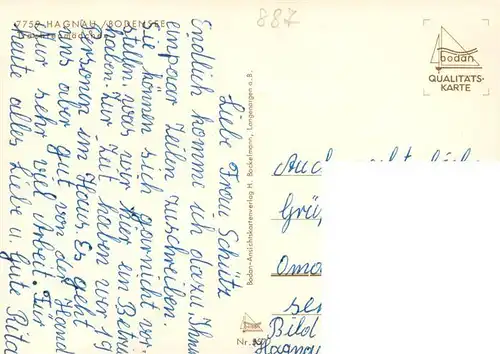 7759 HAGNAU/BODENSEE
887
bodan
QUALITÄTS-
KARTE
Liebe Frau Schütz
Endlich komme ich dazu Ihnen
ein paar Zeilen zuschreiben.
Sie können sich garnicht vor
stellen, was wir hier ein Betrieb
haben. Zur Zeit haben wir 19
Personen im Haus. Es geht
uns aber gut von der Hand
nur sehr viel Arbeit. Für
heute alles liebe u. gute Rita
Bodan-Ansichtskartenverlag H. Bockelmann, Langenargen a.B.
Auch
Grü
Oma
sen
Bild
Hagnau
Nr.